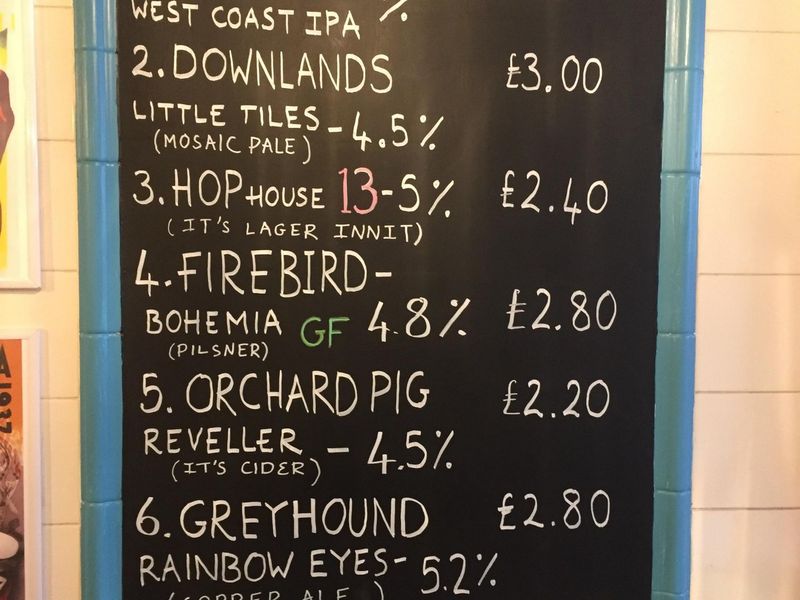 WEST COAST IPA %
2. DOWNLANDS £3.00
LITTLE TILES - 4.5%
(MOSAIC PALE)
3. HOP HOUSE 13 - 5% £2.40
(IT'S LAGER INNIT)
4. FIREBIRD -
BOHEMIA GF 4.8% £2.80
(PILSNER)
5. ORCHARD PIG £2.20
REVELLER - 4.5%
(IT'S CIDER)
6. GREYHOUND £2.80
RAINBOW EYES - 5.2%
(COPPER ALE)
1937